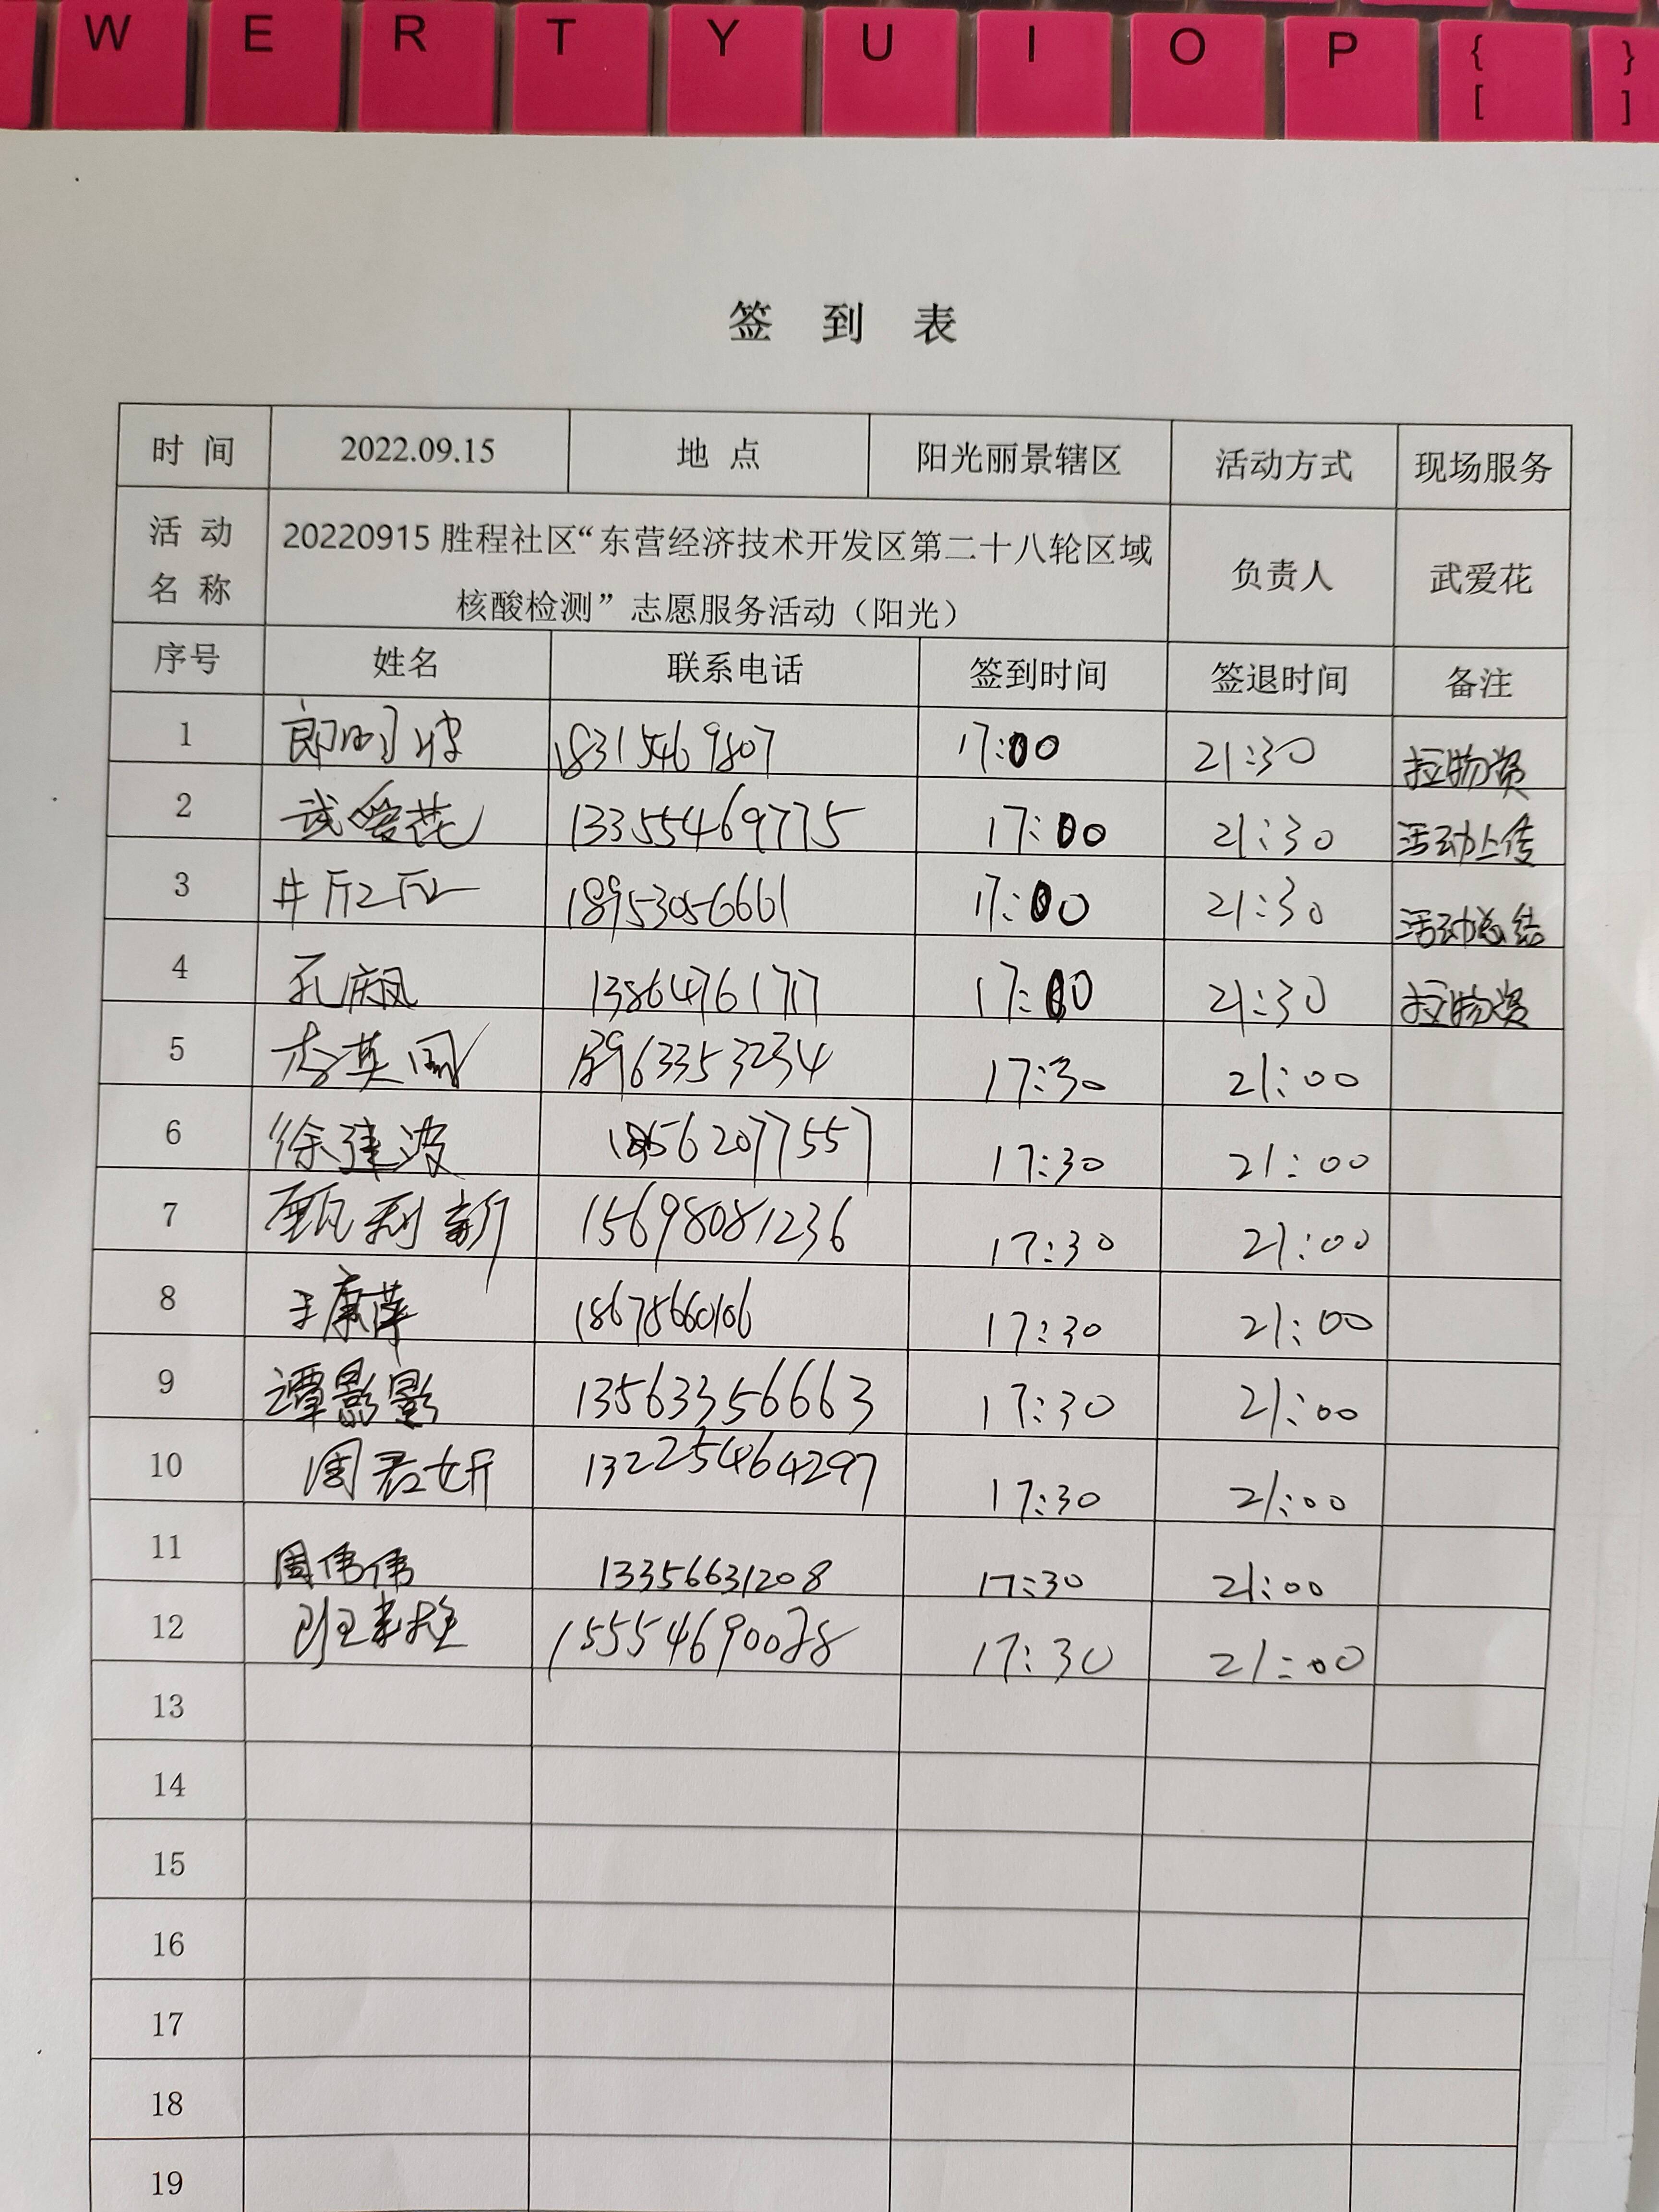 W E R T Y U I O P { }
[ ]
签 到 表
时 间 2022.09.15 地 点 阳光丽景辖区 活动方式 现场服务
活 动 名 称 20220915胜程社区“东营经济技术开发区第二十八轮区域 负责人 武爱花
核酸检测”志愿服务活动（阳光）
序号 姓名 联系电话 签到时间 签退时间 备注
1 18315469807 17:00 21:30 拉物资
2 武爱花 13355469775 17:00 21:30 活动上传
3 牛 18953056661 17:00 21:30 活动总结
4 孔庆凤 13864761717 17:00 21:30 拉物资
5 李英 17:30 21:00
6 徐建波 17:30 21:00
7 甄利新 15698081236 17:30 21:00
8 王康萍 18678660106 17:30 21:00
9 谭影影 13563356663 17:30 21:00
10 周君妍 13225464297 17:30 21:00
11 周伟伟 13356631208 17:30 21:00
12 17:30 21:00
13
14
15
16
17
18
19